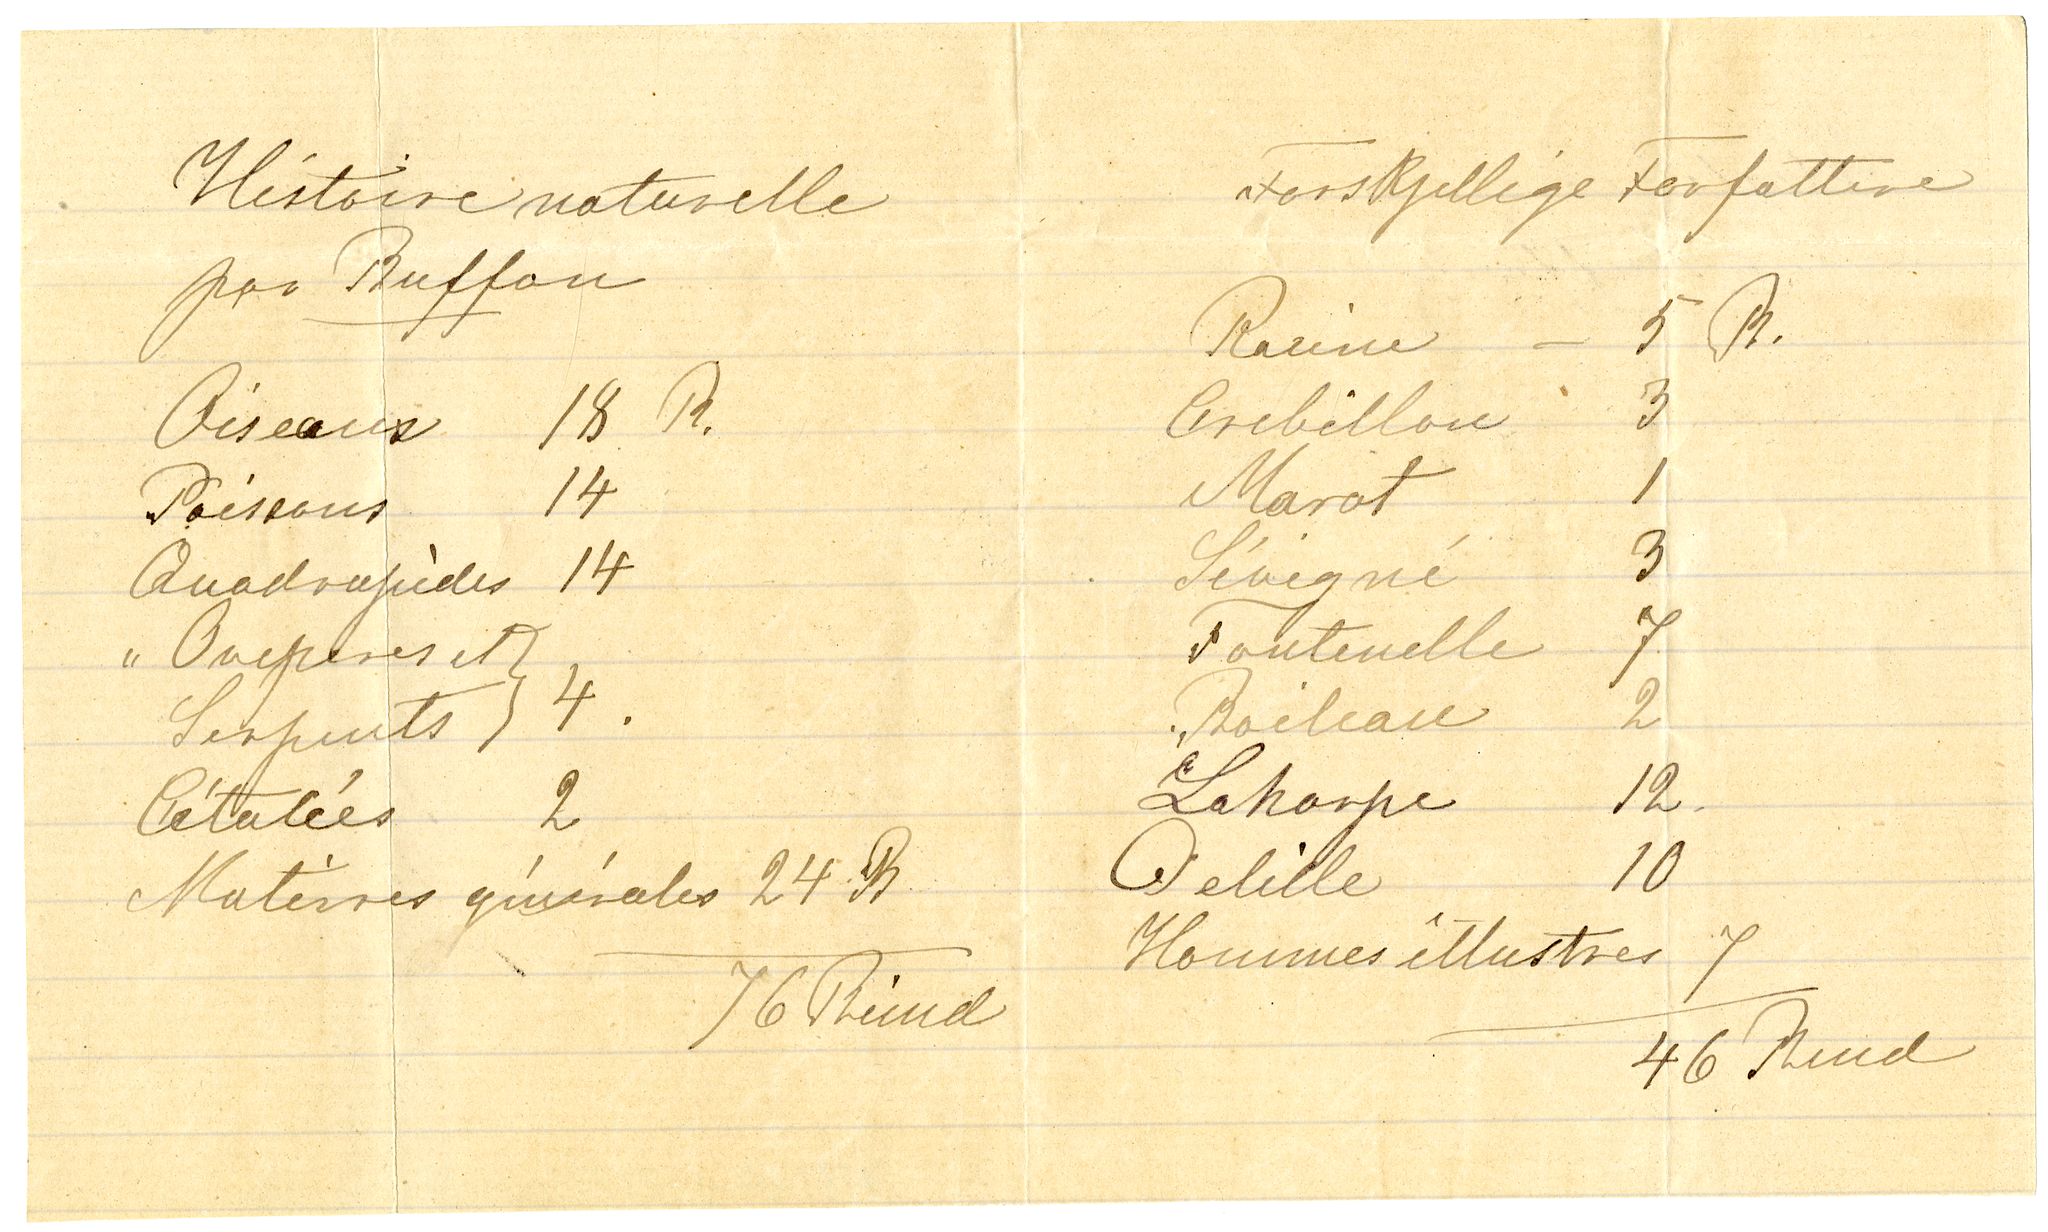 Histoire naturelle
par Buffon
Oiseaux 18 B.
Poissons 14
Quadrupèdes 14
" Ovepares et }
Serpents } 4.
Cétatées 2
Matières générales 24 B
76 Bind
Forskjellige Forfattere
Racine — 5 B.
Crebillon 3
Marot 1
Sévigné 3
Fontenelle 7
Boileau 2
Laharpe 12.
Delille 10
Hommes illustres 7
46 Bind